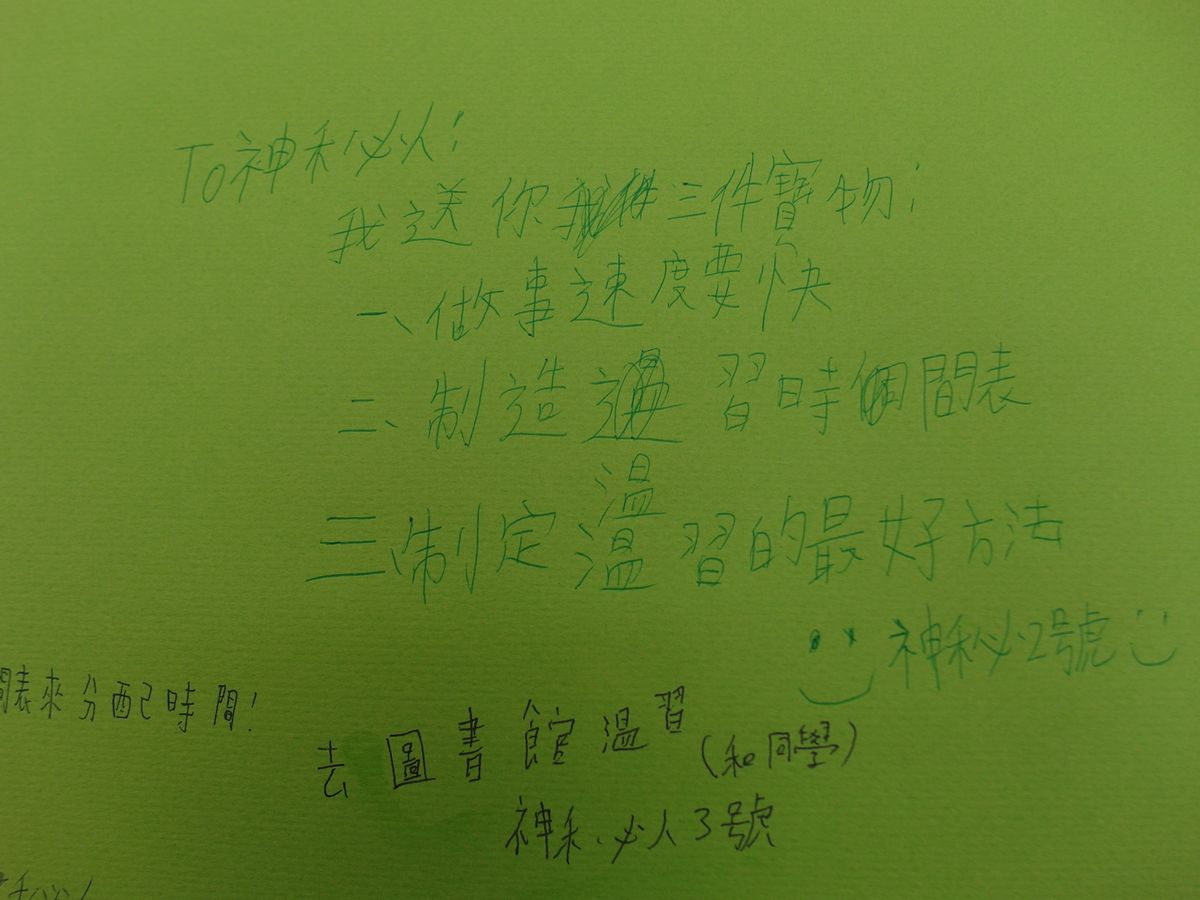 To神秘人:
我送你三件寶物:
一、做事速度要快
二、制造溫習時間表
三、制定溫習的最好方法
神秘2號
間表來分配時間!
去圖書館溫習(和同學)
神秘人3號